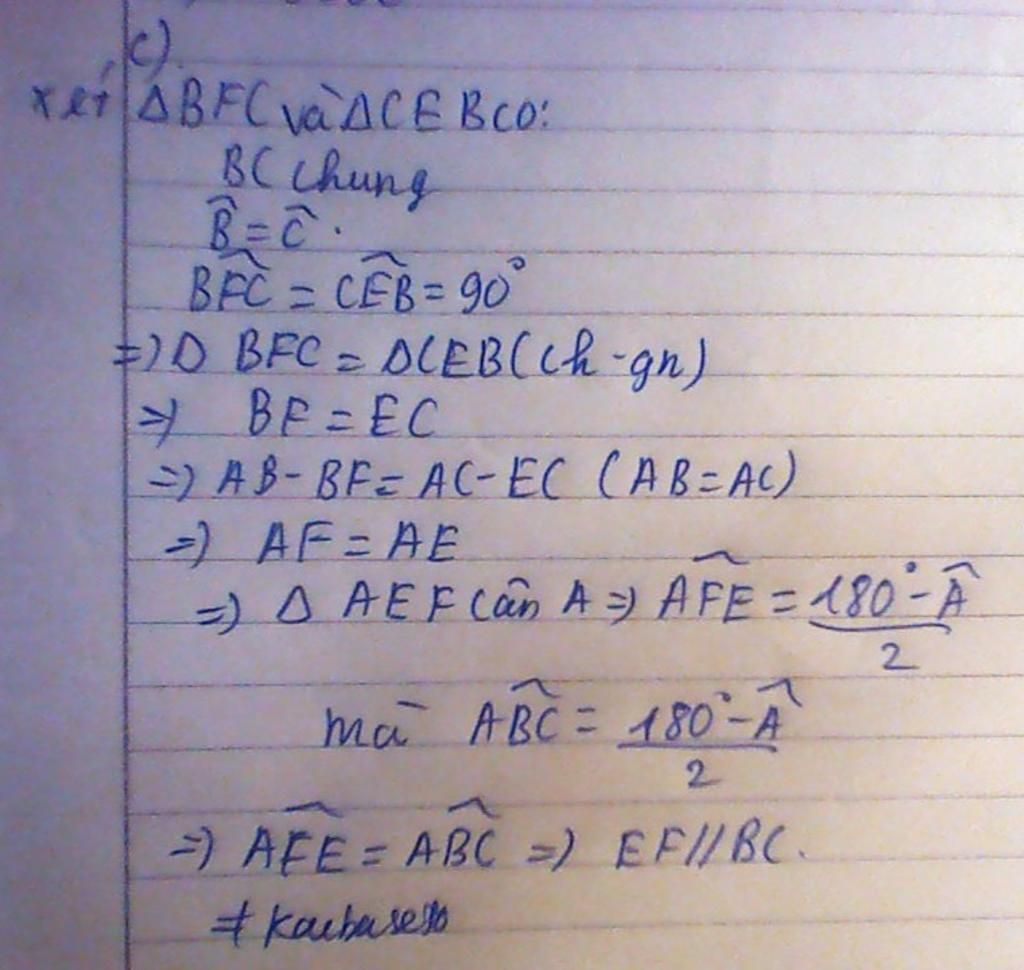 c)
xét ΔBFC và ΔCEB có:
BC chung
B̂ = Ĉ.
B͡FC = C͡EB = 90°
=> Δ BFC = ΔCEB (ch-gn)
=> BF = EC
=> AB - BF = AC - EC (AB = AC)
=> AF = AE
=> Δ AEF cân A => A͡FE = (180° - Â)/2
mà A͡BC = (180° - Â)/2
=> A͡FE = A͡BC => EF // BC.